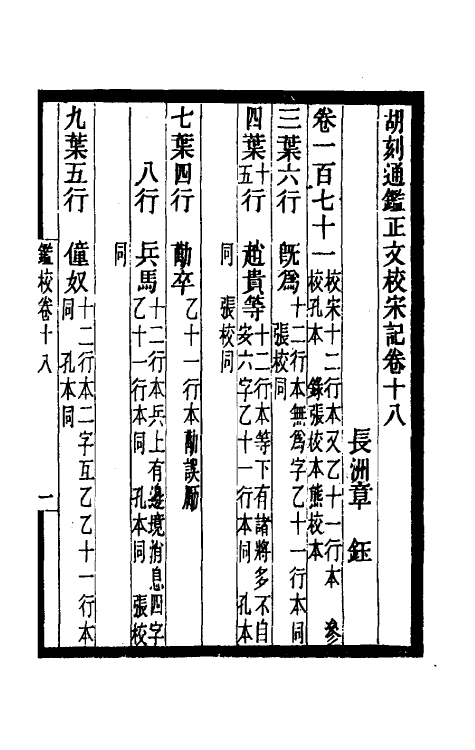 胡刻通鑑正文校宋記卷十八
長洲章　鈺
卷一百七十一 校宋十二行本 又乙十一行本 參校孔本 錄張校本熊校本
三葉六行　旣爲 十二行本無爲字乙十一行本同張校同
四葉十五行　趙貴等 十二行本等下有諸將多不自安六字乙十一行本同 孔本同 張校同
七葉四行　勣卒 乙十一行本勣誤勵
八行　兵馬 十二行本兵上有邊境消息四字乙十一行本同 孔本同 張校同
九葉五行　僮奴 十二行本二字互乙乙十一行本同 孔本同
鑑校卷十八
一